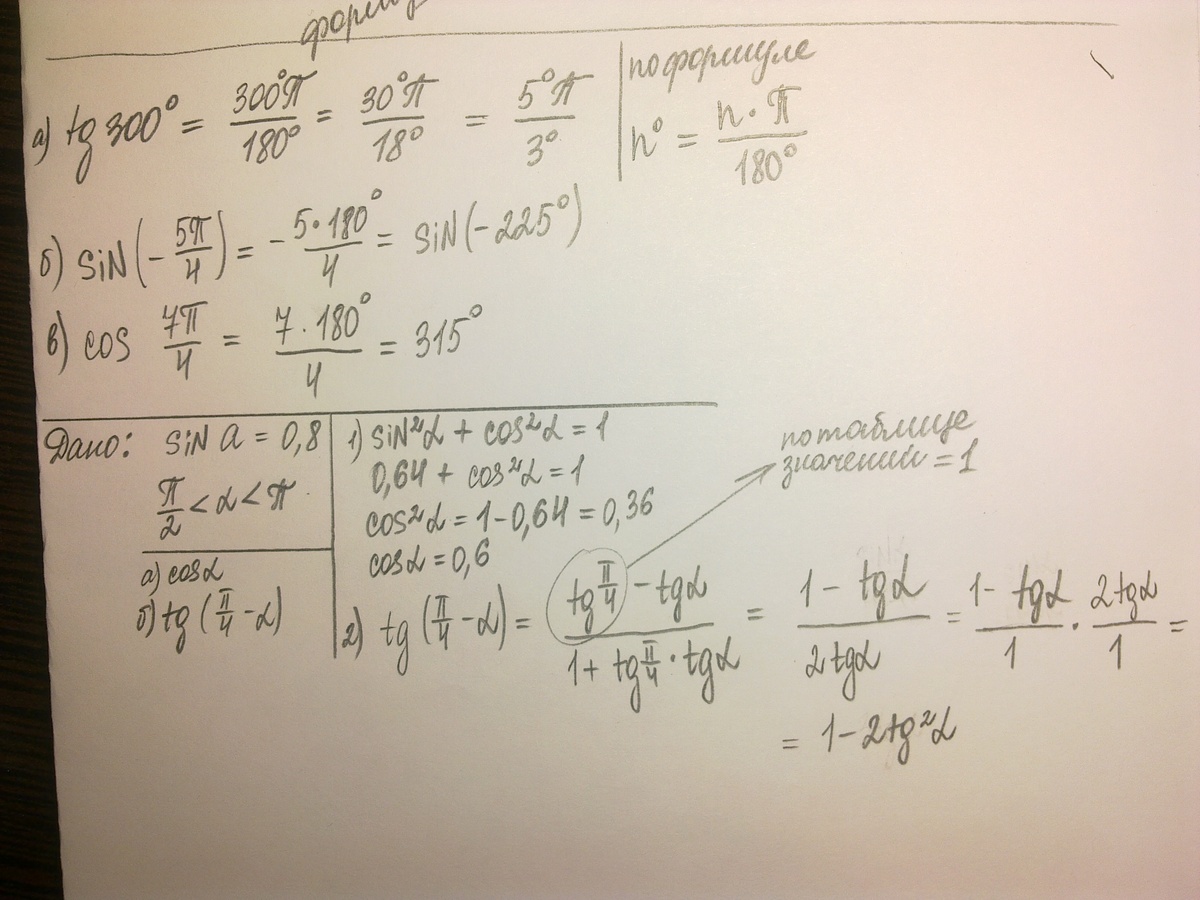 форму
а) tg 300° = 300°π/180° = 30°π/18° = 5°π/3°
по формуле
n° = n·π/180°
б) SiN(-5π/4) = -5·180°/4 = SiN(-225°)
в) cos 7π/4 = 7·180°/4 = 315°
Дано: SiN a = 0,8
π/2 < α < π
а) cosα
б) tg(π/4 - α)
1) SiN²α + cos²α = 1
0,64 + cos²α = 1
cos²α = 1 - 0,64 = 0,36
cosα = 0,6
по таблице
значений = 1
2) tg(π/4 - α) = (tg π/4 - tgα)/(1 + tg π/4 · tgα) = (1 - tgα)/(2tgα) = (1 - tgα)/1 · 2tgα/1 =
= 1 - 2tg²α